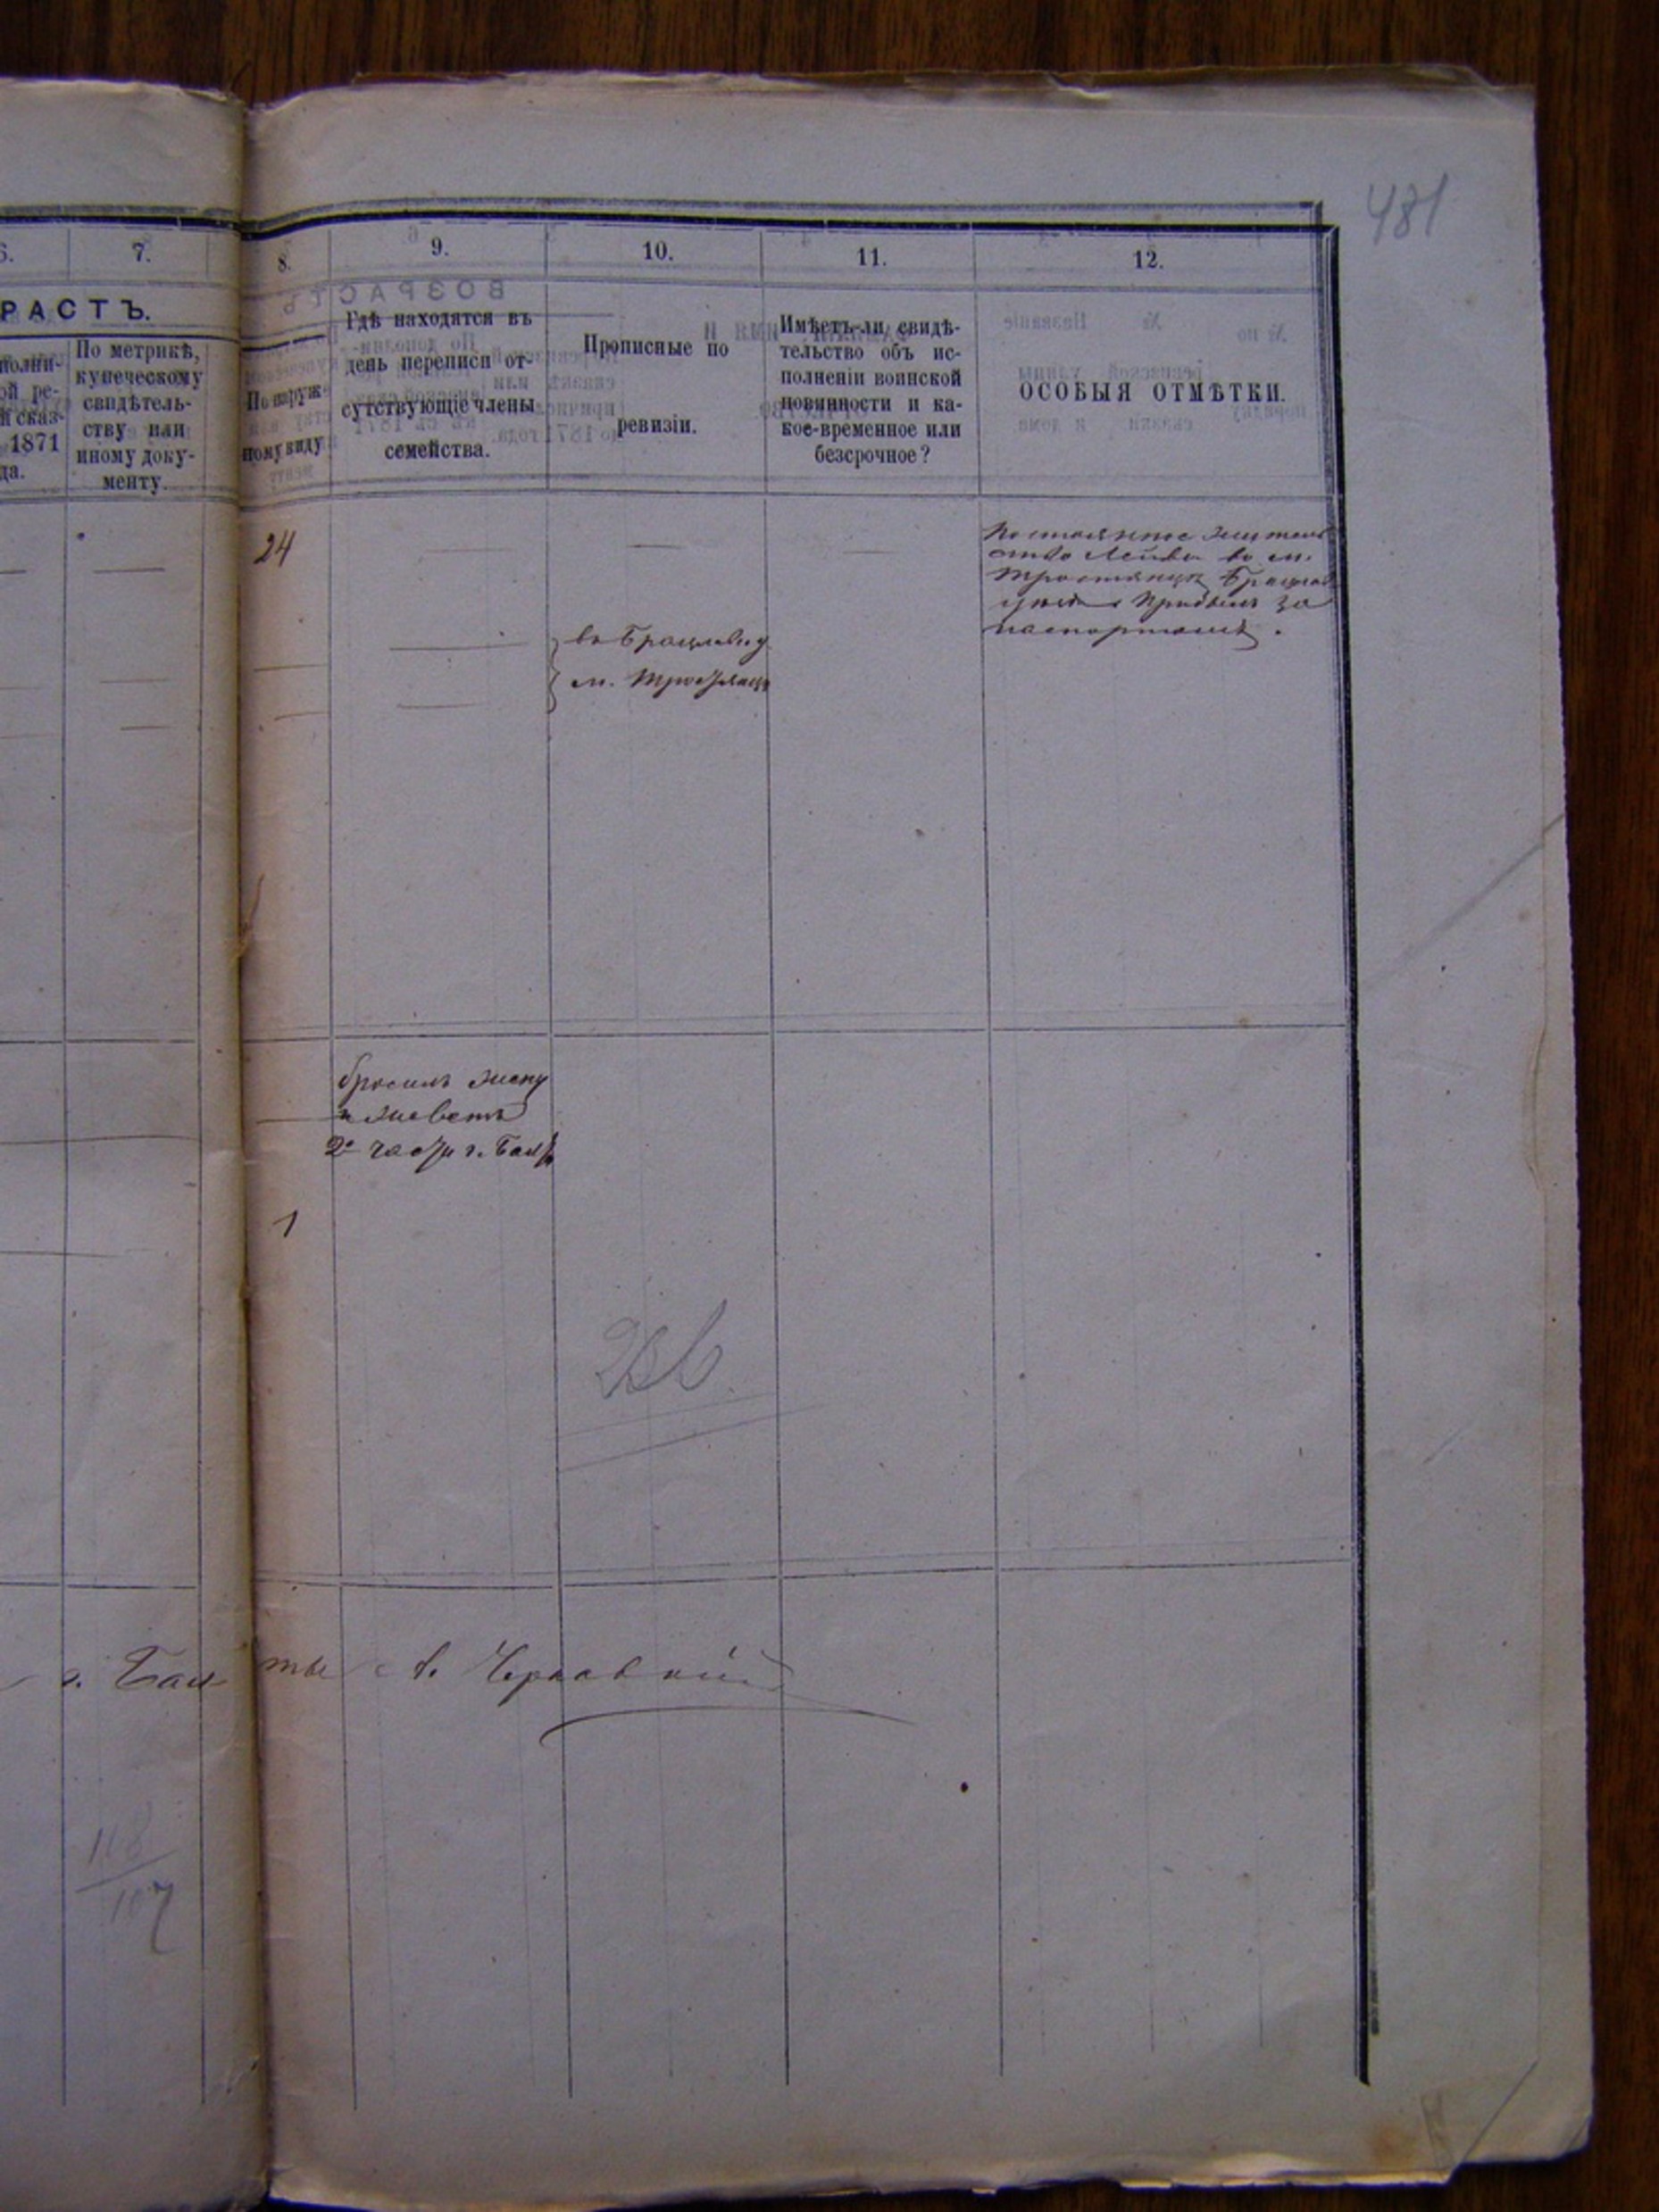 481
6.
7.
8.
9.
10.
11.
12.
РАСТЪ.
полни-
ой ре-
й сказ-
1871
да.
По метрикѣ,
купеческому
свидѣтель-
ству или
иному доку-
менту.
По наруж-
ному виду
Гдѣ находятся въ
день переписи от-
сутствующіе члены
семейства.
Прописные по
ревизіи.
Имѣетъ-ли свидѣ-
тельство объ ис-
полненіи воинской
повинности и ка-
кое-временное или
безсрочное?
ОСОБЫЯ ОТМѢТКИ.
24
Постоянное житель
ство Лейви въ м.
Тростянцѣ Брацлав
уѣзда Прибылъ за
паспортомъ.
въ Брацлав. у
м. Тростянцъ
бросилъ жену
и живетъ
2й части г. Балт
1
г. Бал ты А.
118
107